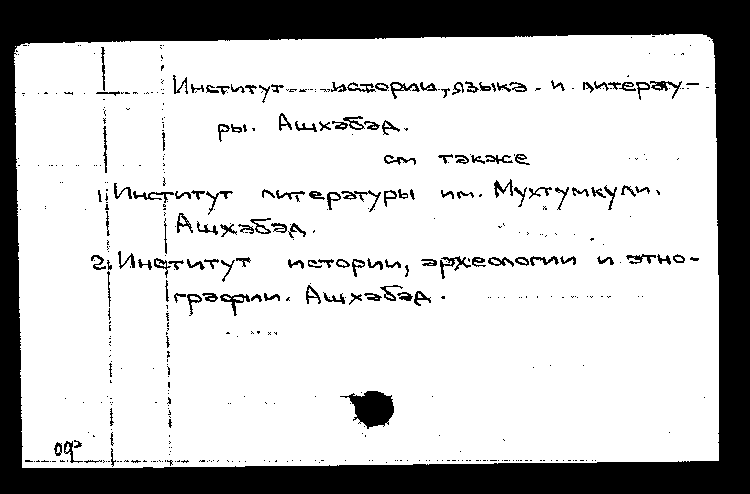 Институт истории, языка и литерату-
ры. Ашхабад.
см также
1. Институт литературы им. Мухтумкули.
Ашхабад.
2. Институт истории, археологии и этно-
графии. Ашхабад.